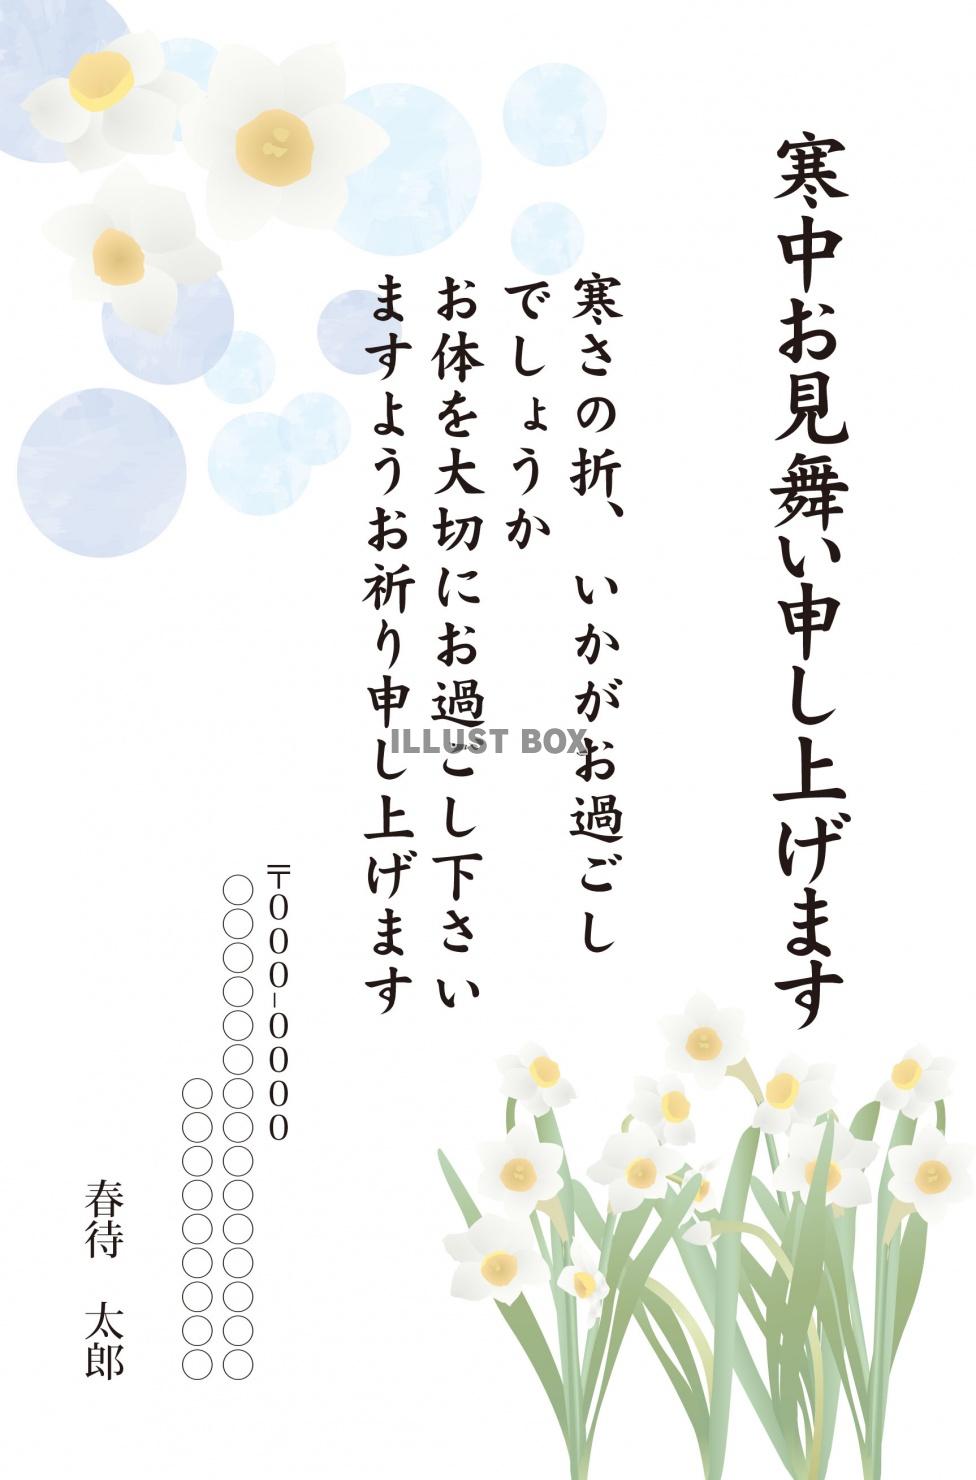 寒中お見舞い申し上げます
寒さの折、いかがお過ごし
でしょうか
お体を大切にお過ごし下さい
ますようお祈り申し上げます
〒000-0000
○○○○○○○○○○○○○○○
○○○○○○○○○
春待　太郎
ILLUST BOX